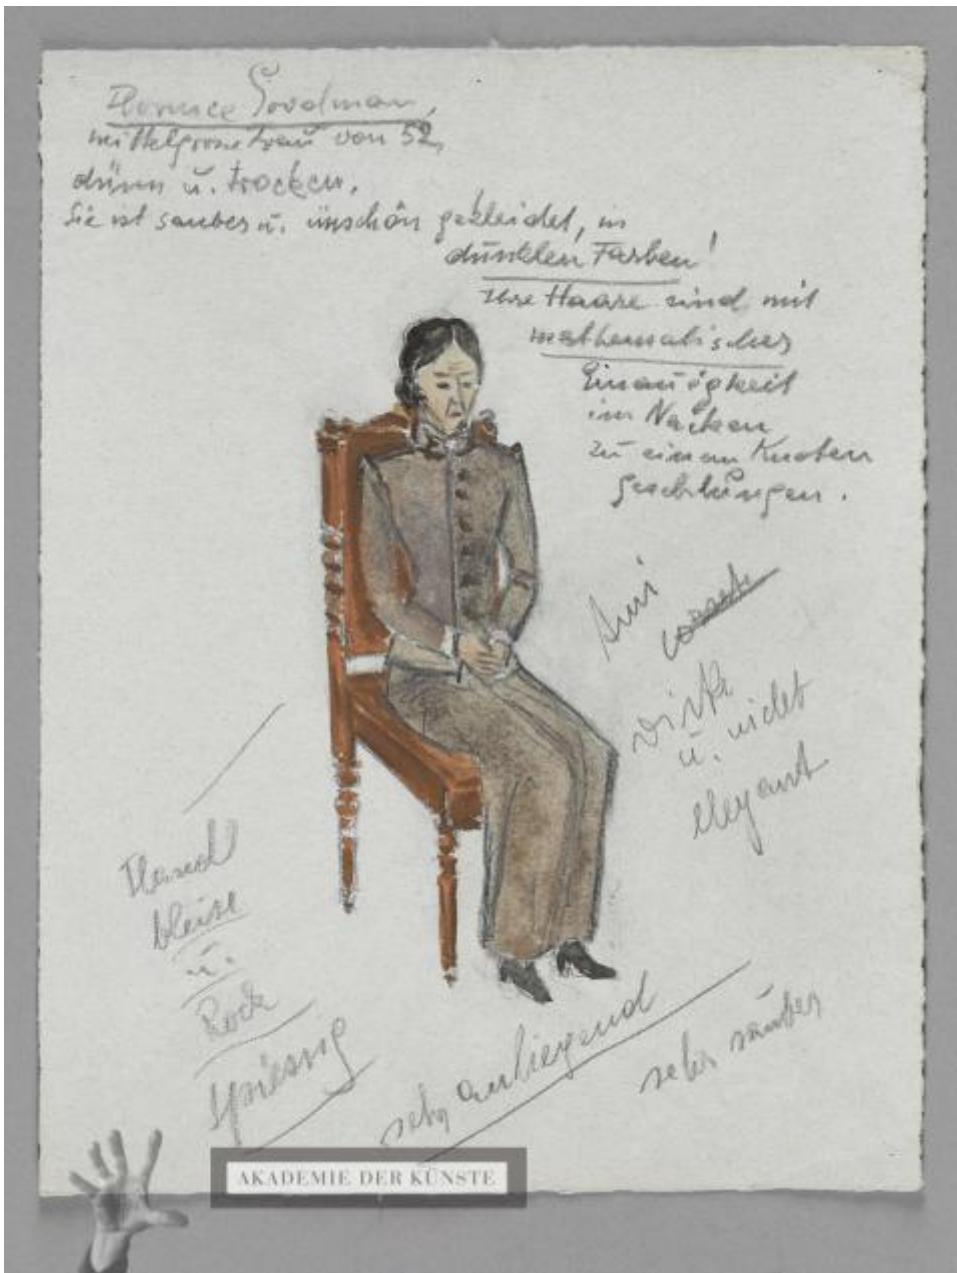 Florence Goodman,
mittelgrosse Frau von 52,
dünn u. trocken.
Sie ist sauber u. unschön gekleidet, in
dunklen Farben!
Ihre Haare sind mit
mathematischer
im Nacken
zu einem Knoten
geschlungen.
u. nicht
elegant
u.
Rock
spiessig
sehr anliegend
sehr sauber
AKADEMIE DER KÜNSTE